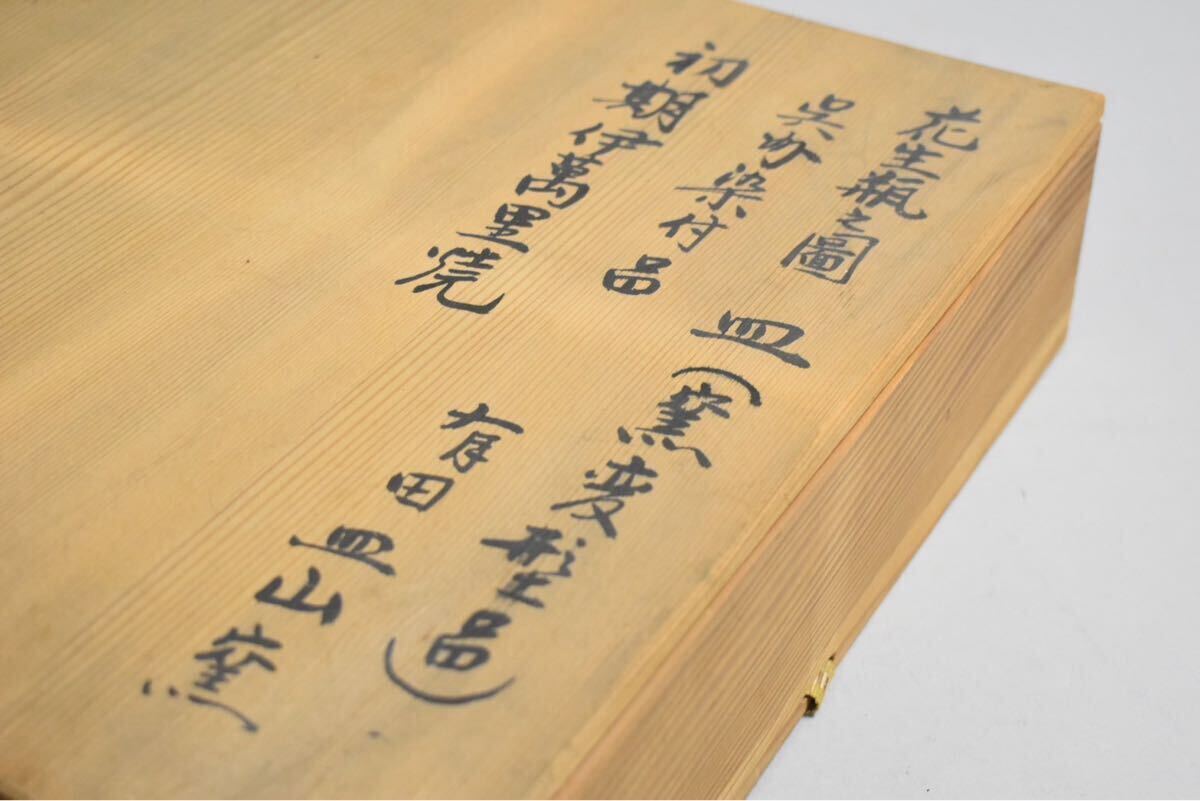 花生瓶之圖
呉州染付皿
皿(窯変型皿)
初期伊萬里焼
有田皿山窯